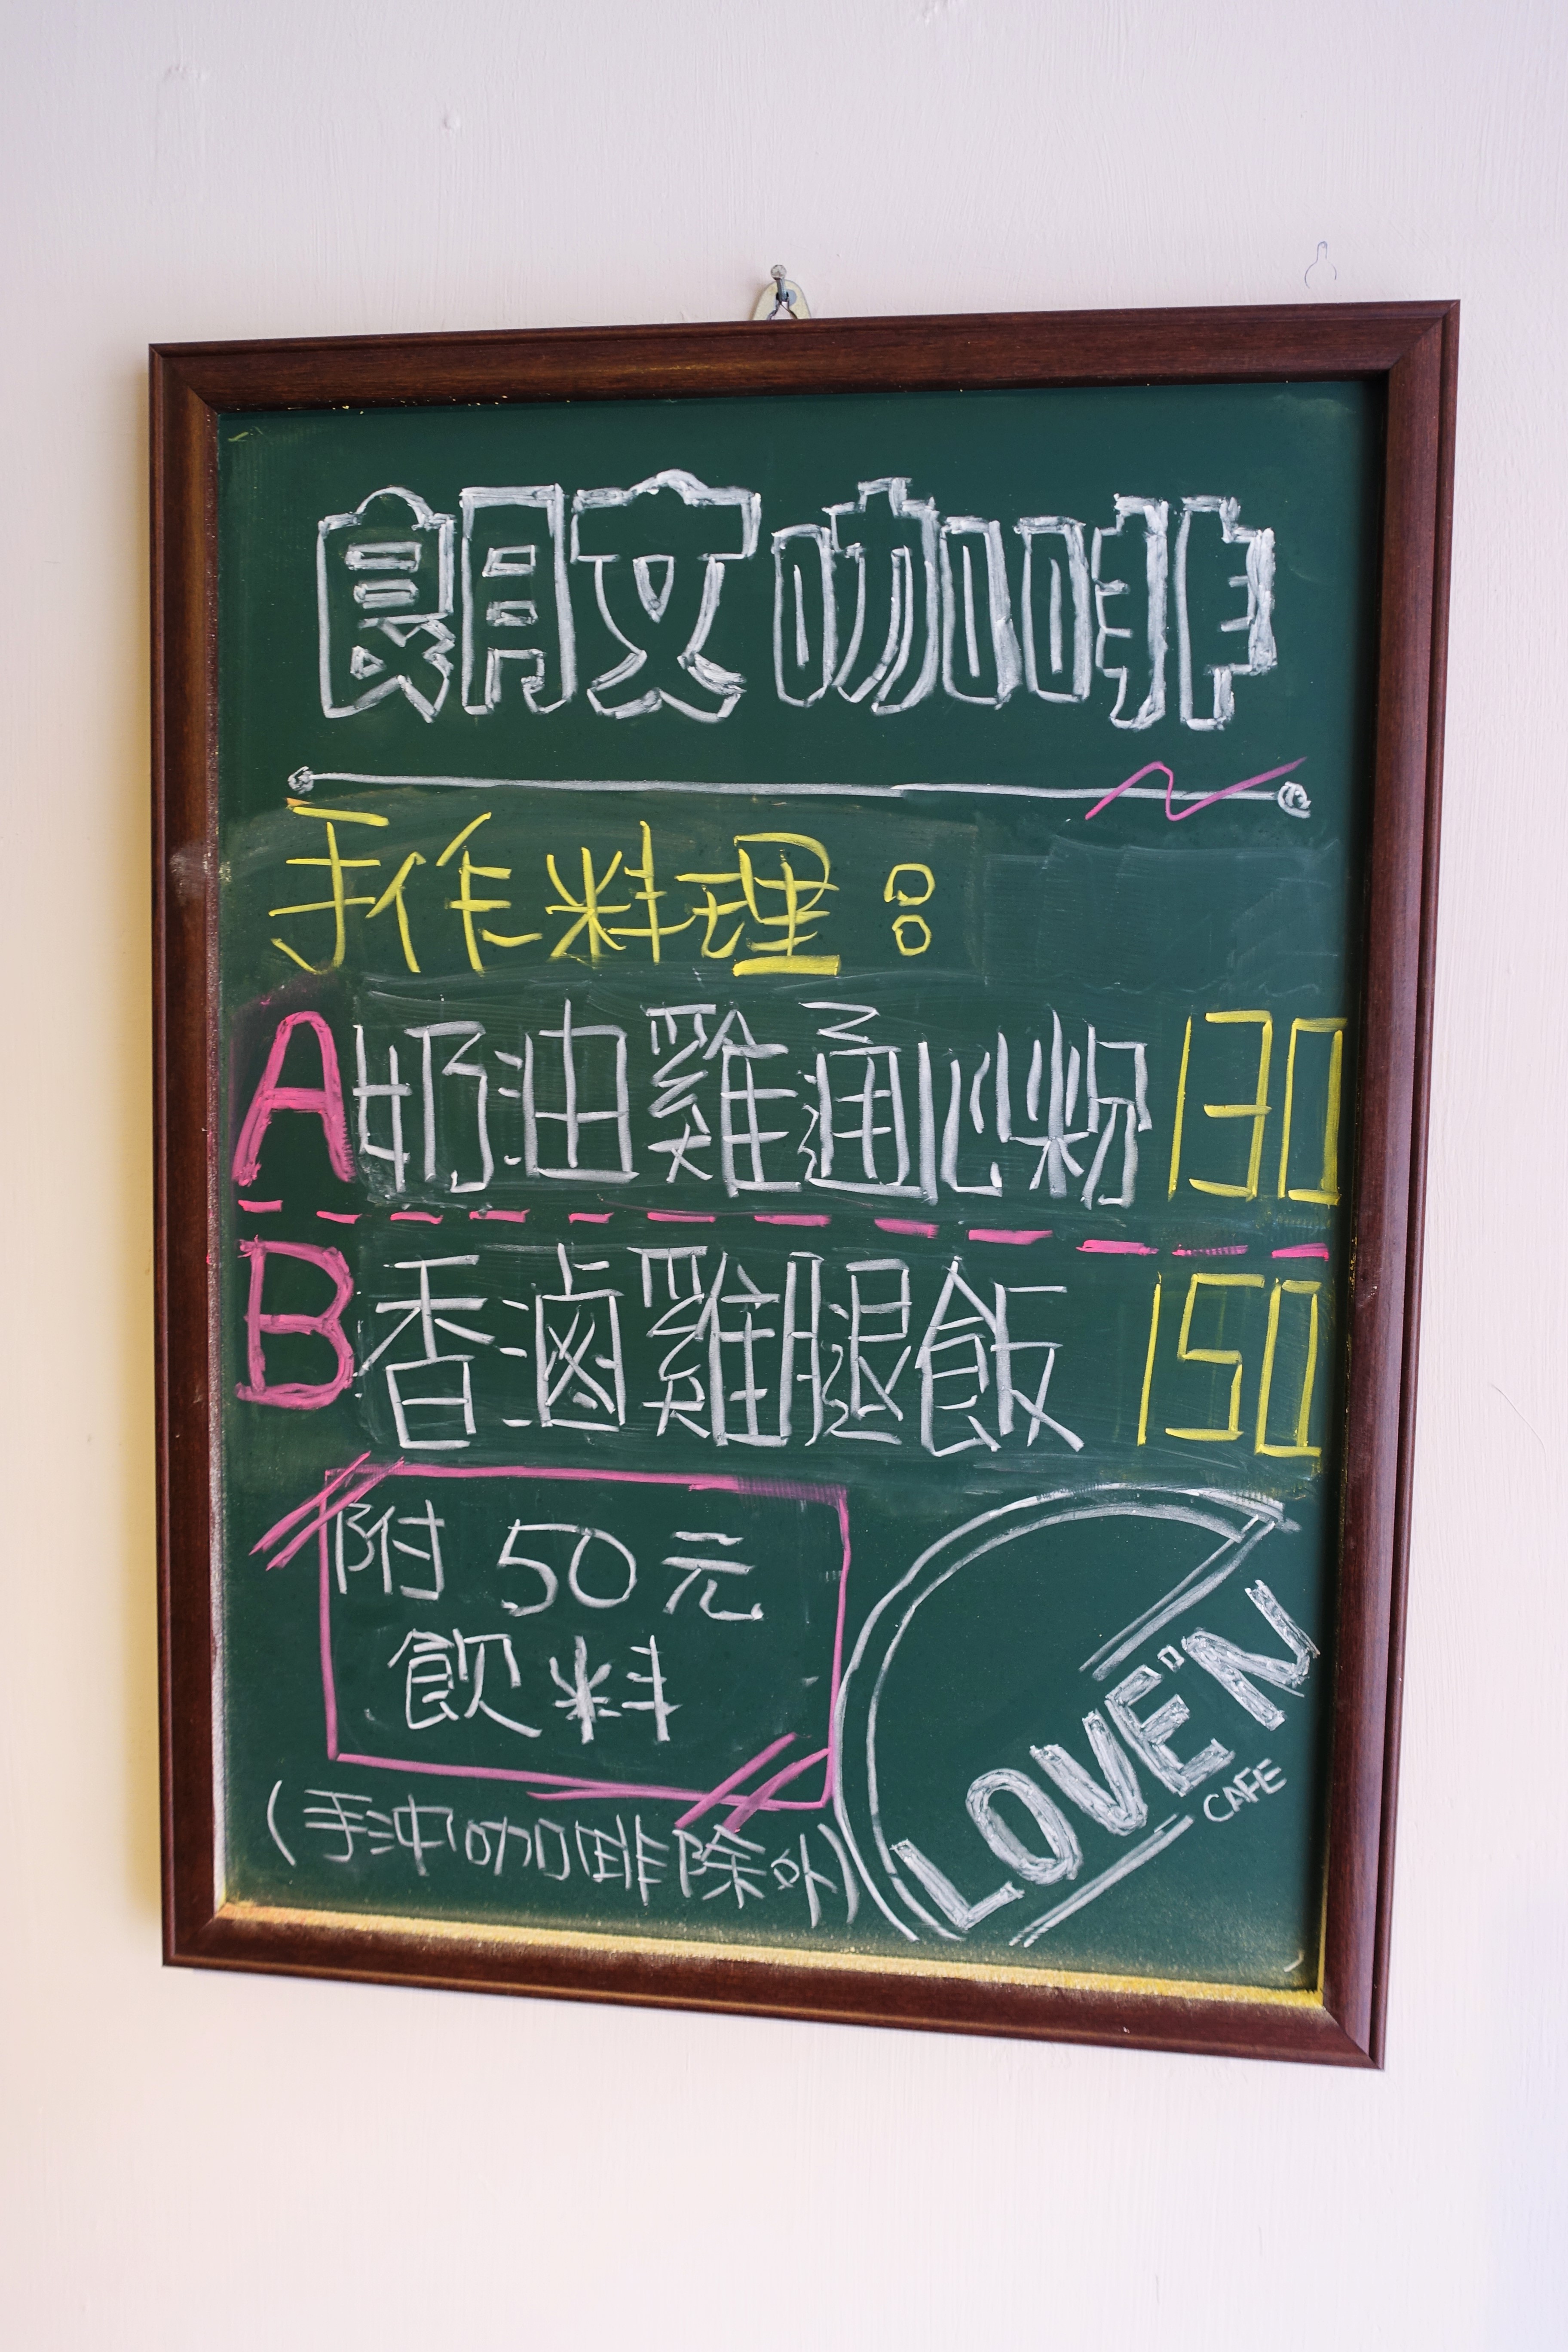 朗文咖啡
手作料理：
A奶油雞通心粉 130
B香滷雞腿飯 150
附 50 元
飲料
(手沖咖啡除外)
LOVE"N
CAFE